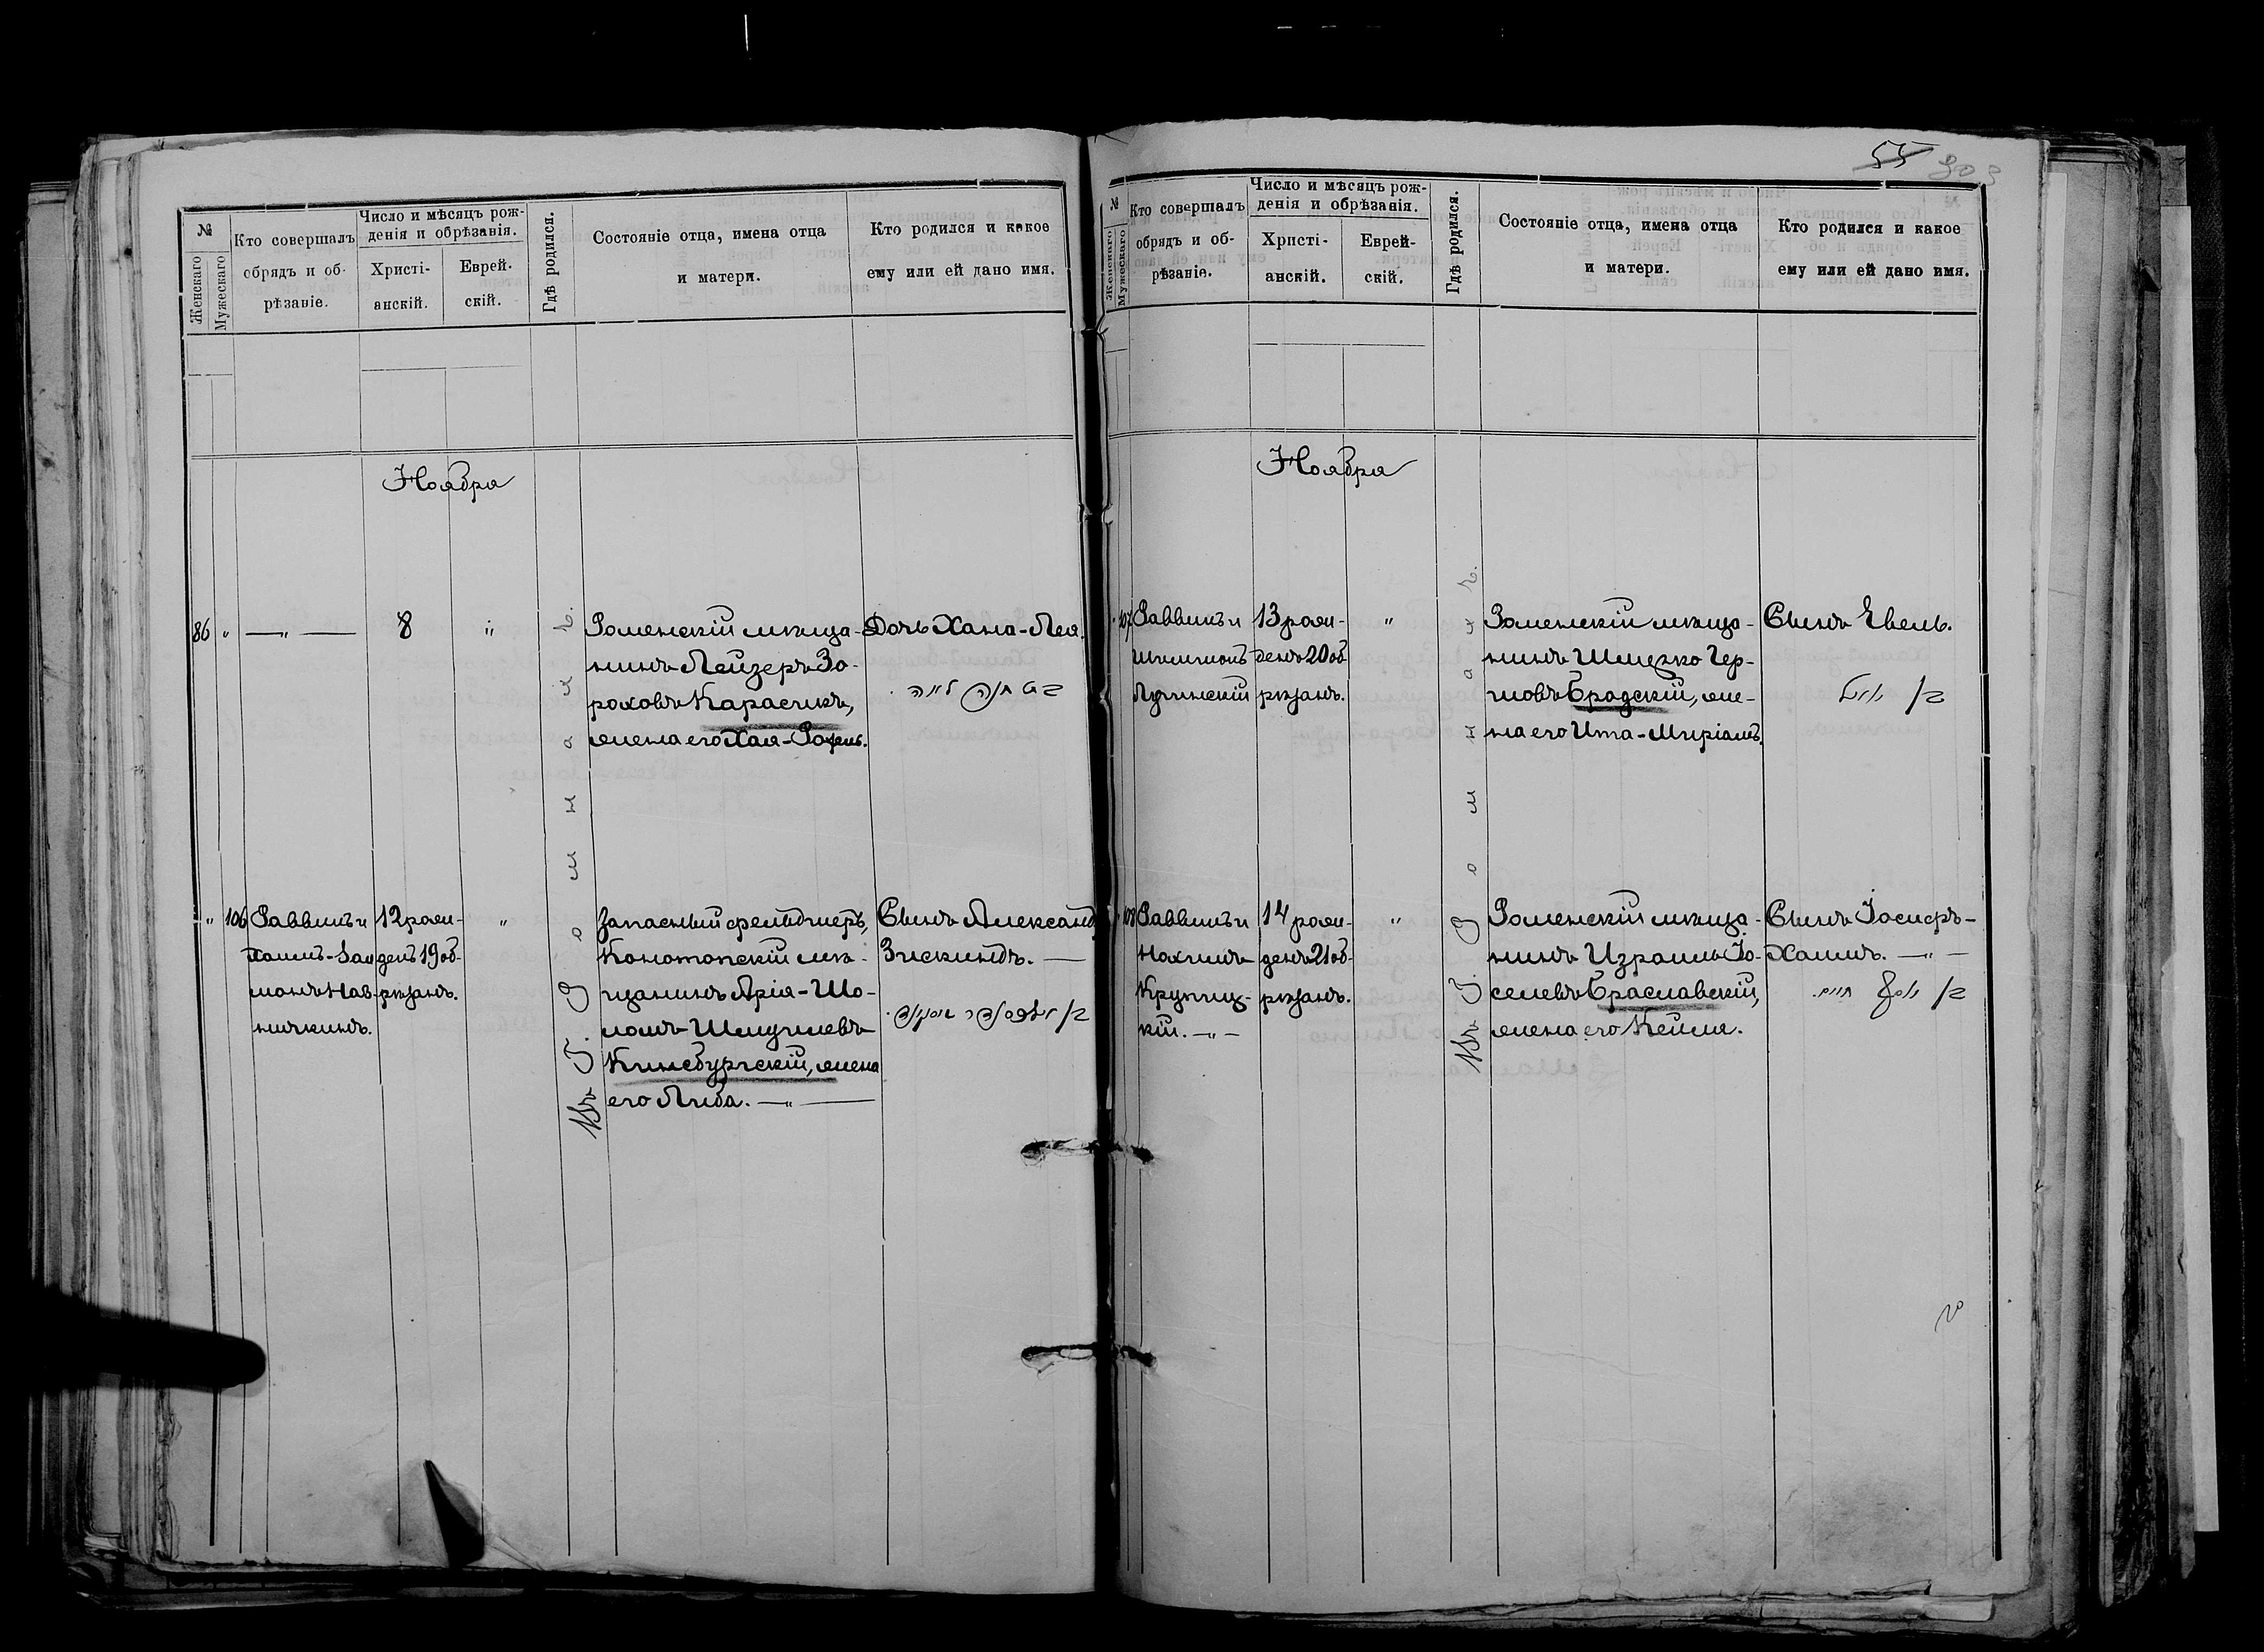 №
Женскаго
Мужескаго
Кто совершалъ
обрядъ и об-
рѣзаніе.
Число и мѣсяцъ рож-
денія и обрѣзанія.
Христі-
анскій.
Еврей-
скій.
Гдѣ родился.
Состояніе отца, имена отца
и матери.
Кто родился и какое
ему или ей дано имя.
Ноября
86
"
— " —
8
"
Въ Г. Ромнахъ.
Роменскій мѣща-
нинъ Лейзеръ Зо-
роховъ Карасикъ,
жена его Хая-Рохель.
Дочь Хана-Лея.
בת חנה לאה.
"
106
Раввинъ и
Хаимъ-Зал
манъ Нав-
ничкинъ.
12 рож-
денъ 19 об-
рѣзанъ.
"
Запасный фельдшеръ,
Конотопскій мѣ-
щанинъ Арія-Шо-
ломъ Шмуилевъ
Кинсбургскій, жена
его Либа. — " —
Сынъ Александ
Зискиндъ. —
בן אלכסנדר זיסקינד.
55
303
№
Женскаго
Мужескаго
Кто совершалъ
обрядъ и об-
рѣзаніе.
Число и мѣсяцъ рож-
денія и обрѣзанія.
Христі-
анскій.
Еврей-
скій.
Гдѣ родился.
Состояніе отца, имена отца
и матери.
Кто родился и какое
ему или ей дано имя.
Ноября
"
107
Раввинъ и
Лучинскій
13 рож-
денъ 20 об
рѣзанъ.
"
Въ Г. Ромнахъ.
Роменскій мѣща-
нинъ Шмерко Гер-
шовъ Бродскій, же-
на его Ита-Миріамъ.
Сынъ Евель.
בן
"
108
Раввинъ и
Нахимъ
Крупиц-
кій. — " —
14 рож-
денъ 21 об-
рѣзанъ.
"
Роменскій мѣща-
нинъ Израиль Іо-
селевъ Браславскій,
жена его Кейла.
Сынъ Іосифъ-
Хаимъ. — " —
בן יוסף חיים.